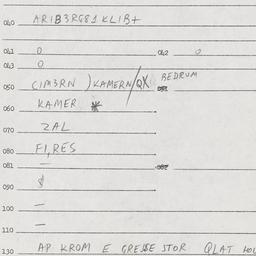 040 ARIB3RG81 KLIB+
041 0 042 0
043 0
050 (IM3RN ) KAMERN/QX: BEDRUM 051
060 KAMER *
070 ZAL
080 FI, RES
081 — 082
090 $
100 —
110 —
130 AP KROM E GRESSE STOR QLAT HOL